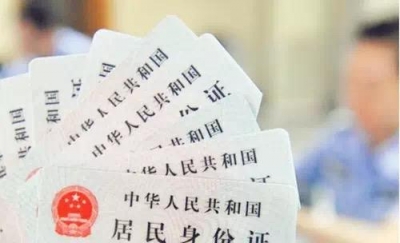 中华人民共和国
中华人民共和国
份证
中华人民共和国
份证
中华人民共和国
民身份证
中华人民共和国
居民身份证